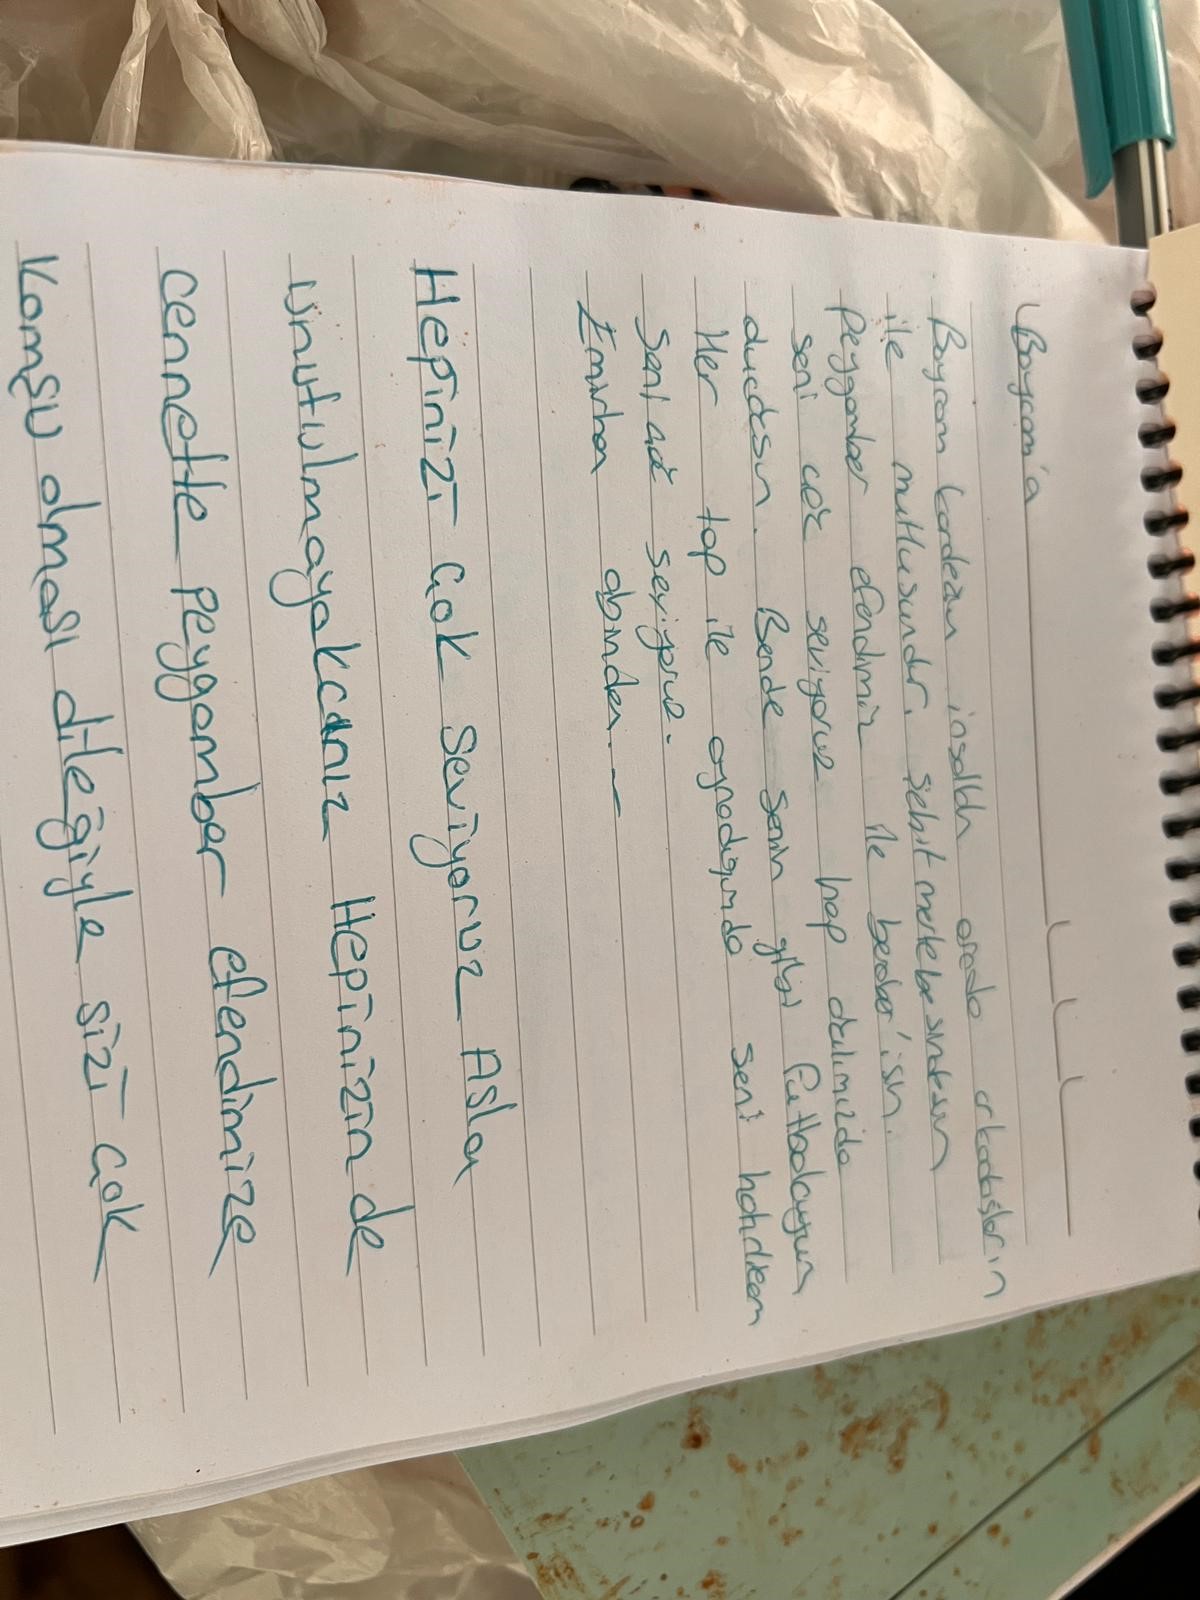 Bayram'a
Bayram kardeşim inşallah orada arkadaşların
ile mutlusundur. Şehit mertebesindesin
Peygamber efendimiz ile beraber'isin.
seni çok seviyoruz hep dalımızda
duadasın. Bende senin gibi futbolcuyum
Her top ile oynadığımda seni hatırlıcam
Seni çok seviyoruz.
Emirhan abinden. _
Hepinizi çok Seviyoruz Asla
unutulmayakcanız Hepinizin de
cennette Peygamber efendimize
komşu olması dileğiyle sizi çok